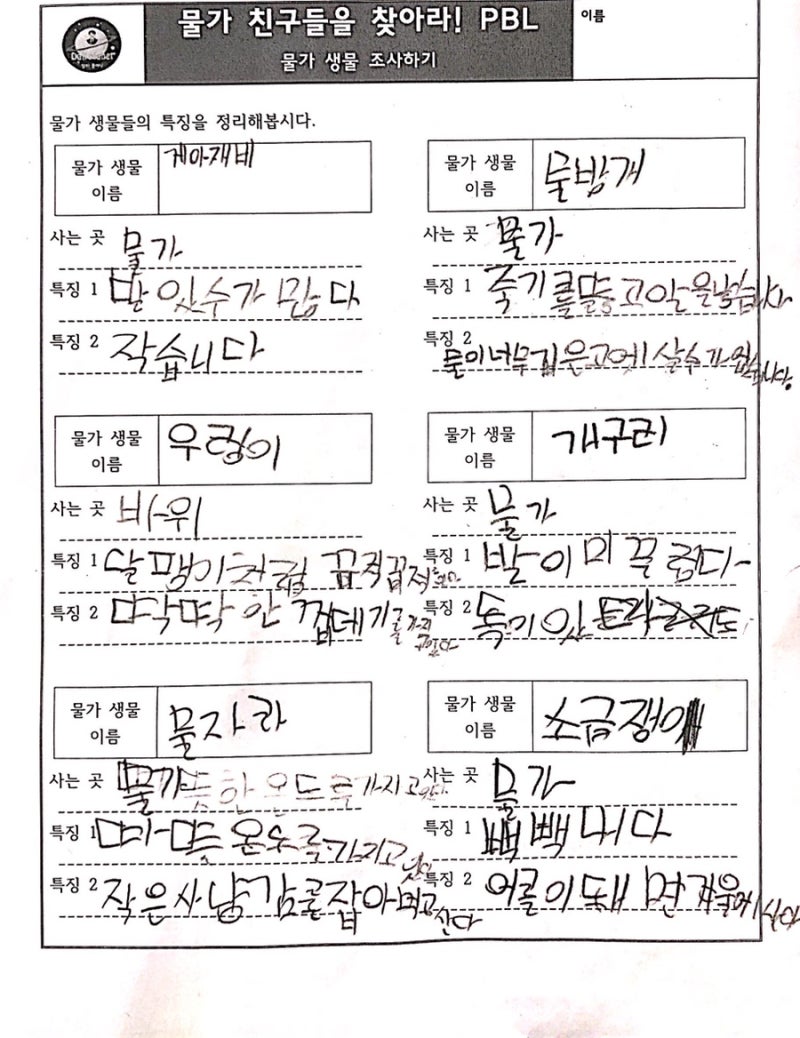 물가 친구들을 찾아라! PBL
이름
물가 생물 조사하기
물가 생물들의 특징을 정리해봅시다.
물가 생물 이름 게아재비
사는 곳 물가
특징 1 말 있수가 많다
특징 2 작습니다
물가 생물 이름 물방개
사는 곳 물가
특징 1 죽기 를 고 알을 낳습니다
특징 2 물이 너무 깊은 고에 살수가 없습니다.
물가 생물 이름 우렁이
사는 곳 바위
특징 1 달팽이처럼 꿉적꿉적
특징 2 딱딱 안 껍데기를 가지고있다
물가 생물 이름 개구리
사는 곳 물가
특징 1 발이 미끌럽다
특징 2 독기 있
물가 생물 이름 물자라
사는 곳 물가
특징 1 가지고
특징 2 작은 사냥감를 잡아 먹고 산다
물가 생물 이름 소금쟁이
사는 곳 물가
특징 1 빽빽
특징 2 어름이 돼면 겨울에